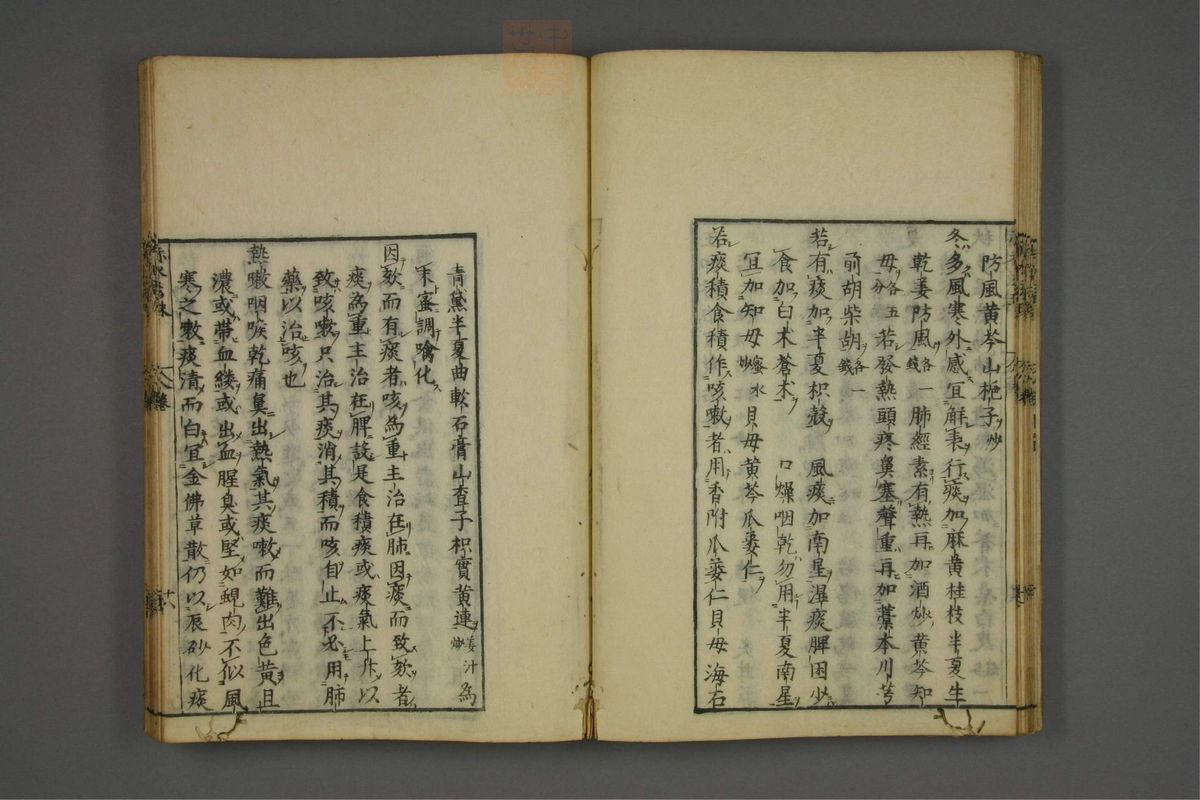 防風黃芩山梔子炒
冬多風寒外感宜解表行痰加麻黃桂枝半夏生
乾姜防風各一錢肺經素有熱再加酒炒黃芩知
母各五分若發熱頭疼鼻塞聲重再加藁本川芎
前胡柴胡各一錢
若有痰加半夏枳殼 風痰加南星濕痰脾困少
食加白朮蒼朮 口燥咽乾勿用半夏南星
宜加知母蜜水炒貝母黃芩瓜蔞仁
若痰積食積作咳嗽者用香附瓜蔞仁貝母海石
青黛半夏曲軟石膏山查子枳實黃連姜汁炒為
末蜜調噙化
因欬而有痰者咳為重主治在肺因痰而致欬者
痰為重主治在脾該是食積痰或痰氣上升以
致咳嗽只治其痰消其積而咳自止不必用肺
藥以治咳也
熱嗽咽喉乾痛鼻出熱氣其痰嗽而難出色黃且
濃或帶血縷或出血腥臭或堅如蜆肉不似風
寒之嗽痰清而白宜金佛草散仍以辰砂化痰